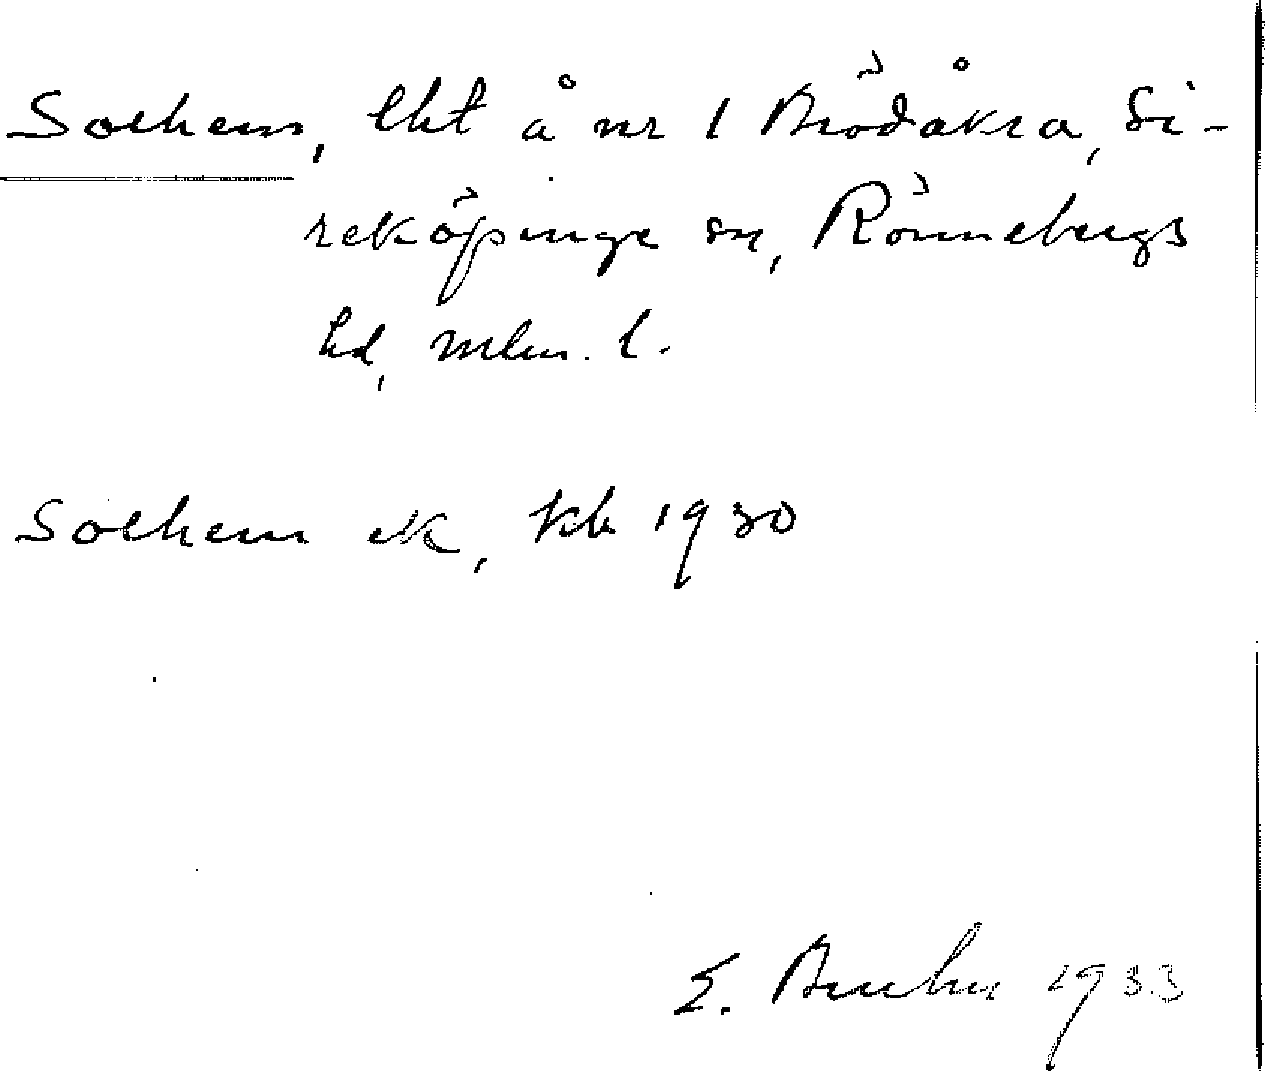 Solhem, lht å nr 1 Brödåkra, Si-
reköpinge sn, Rönnebergs
hd, mlm. l.
Solhem ek, kb 1930
E. Bruhn 1933